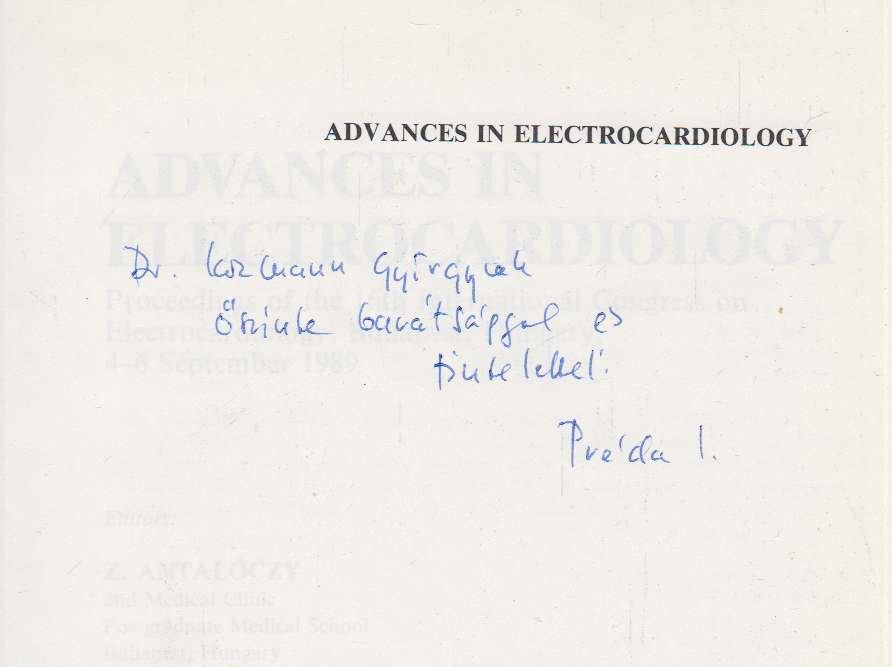 ADVANCES IN ELECTROCARDIOLOGY
ADVANCES IN
ELECTROCARDIOLOGY
Dr. Kozmann Györgynek
Proceedings of the 16th International Congress on
őszinte barátsággal és
Electrocardiology, Budapest, Hungary,
tisztelettel:
4–6 September 1989
Préda I.
Editors:
Z. ANTALÓCZY
2nd Medical Clinic
Postgraduate Medical School
Budapest, Hungary